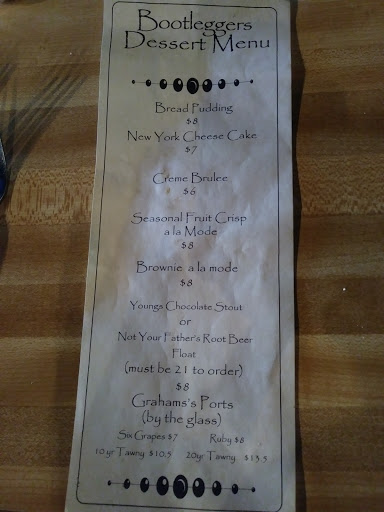 Bootleggers
Dessert Menu
Bread Pudding
$8
New York Cheese Cake
$7
Creme Brulee
$6
Seasonal Fruit Crisp
a la Mode
$8
Brownie a la mode
$8
Youngs Chocolate Stout
or
Not Your Father's Root Beer
Float
(must be 21 to order)
$8
Grahams's Ports
(by the glass)
Six Grapes $7 Ruby $8
10 yr Tawny $10.5 20yr Tawny $13.5